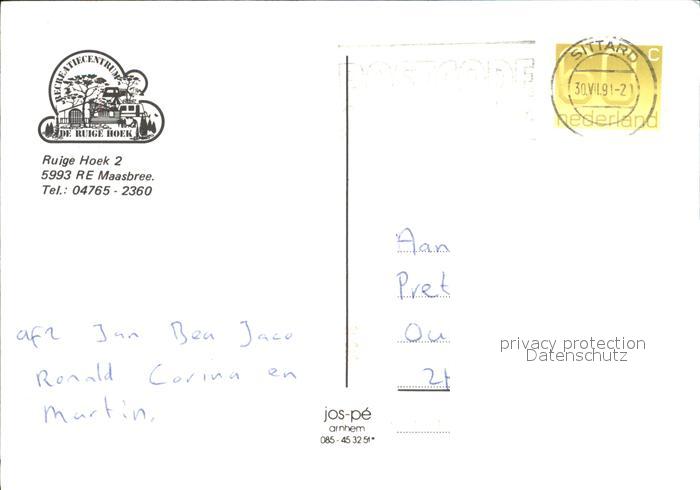 RECREATIECENTRUM
DE RUIGE HOEK
Ruige Hoek 2
5993 RE Maasbree.
Tel.: 04765 - 2360
POSTCODE
SITTARD
30.VII.91-21
60 c
nederland
Aan
Pret
Ou
21
privacy protection
Datenschutz
afz Jan Bea Jaco
Ronald Corina en
Martin.
jos-pé
arnhem
085 - 45 32 51*